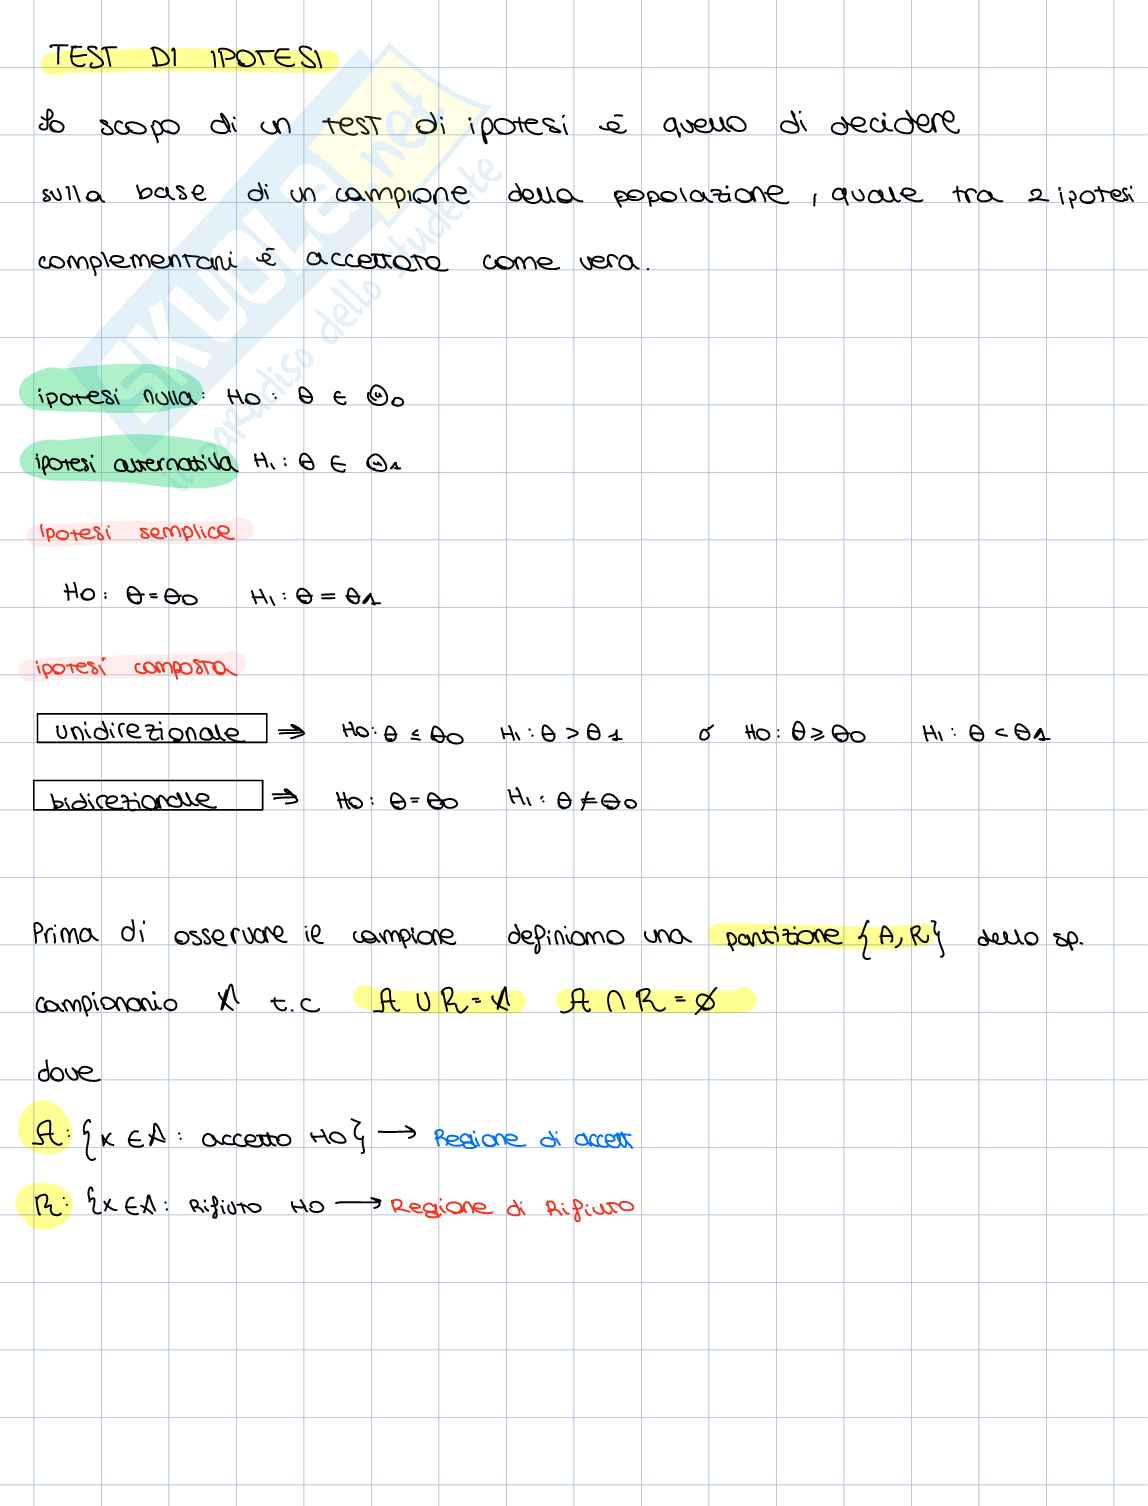 TEST DI IPOTESI
Lo scopo di un test di ipotesi è quello di decidere
sulla base di un campione della popolazione, quale tra 2 ipotesi
complementari è accettata come vera.
ipotesi nulla: H0: θ ∈ Θ0
ipotesi alternativa H1: θ ∈ Θ1
Ipotesi semplice
H0: θ=θ0 H1: θ = θ1
ipotesi composta
unidirezionale ⇒ H0: θ ≤ θ0 H1: θ > θ1 o H0: θ ≥ θ0 H1: θ < θ1
bidirezionale ⇒ H0: θ=θ0 H1: θ ≠ θ0
Prima di osservare il campione definiamo una partizione {A, R} dello sp.
campionario X t.c A ∪ R = X A ∩ R = ∅
dove
A: {x ∈ X: accetto H0} → Regione di accett
R: {x ∈ X: Rifiuto H0 → Regione di Rifiuto
SKUOLA.net
il paradiso dello studente